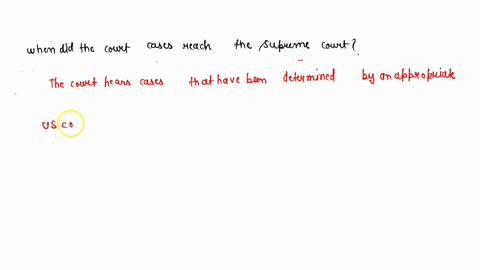 when did the court cases reach the supreme court?
The court hears cases that have been determined by an appropriate
US co